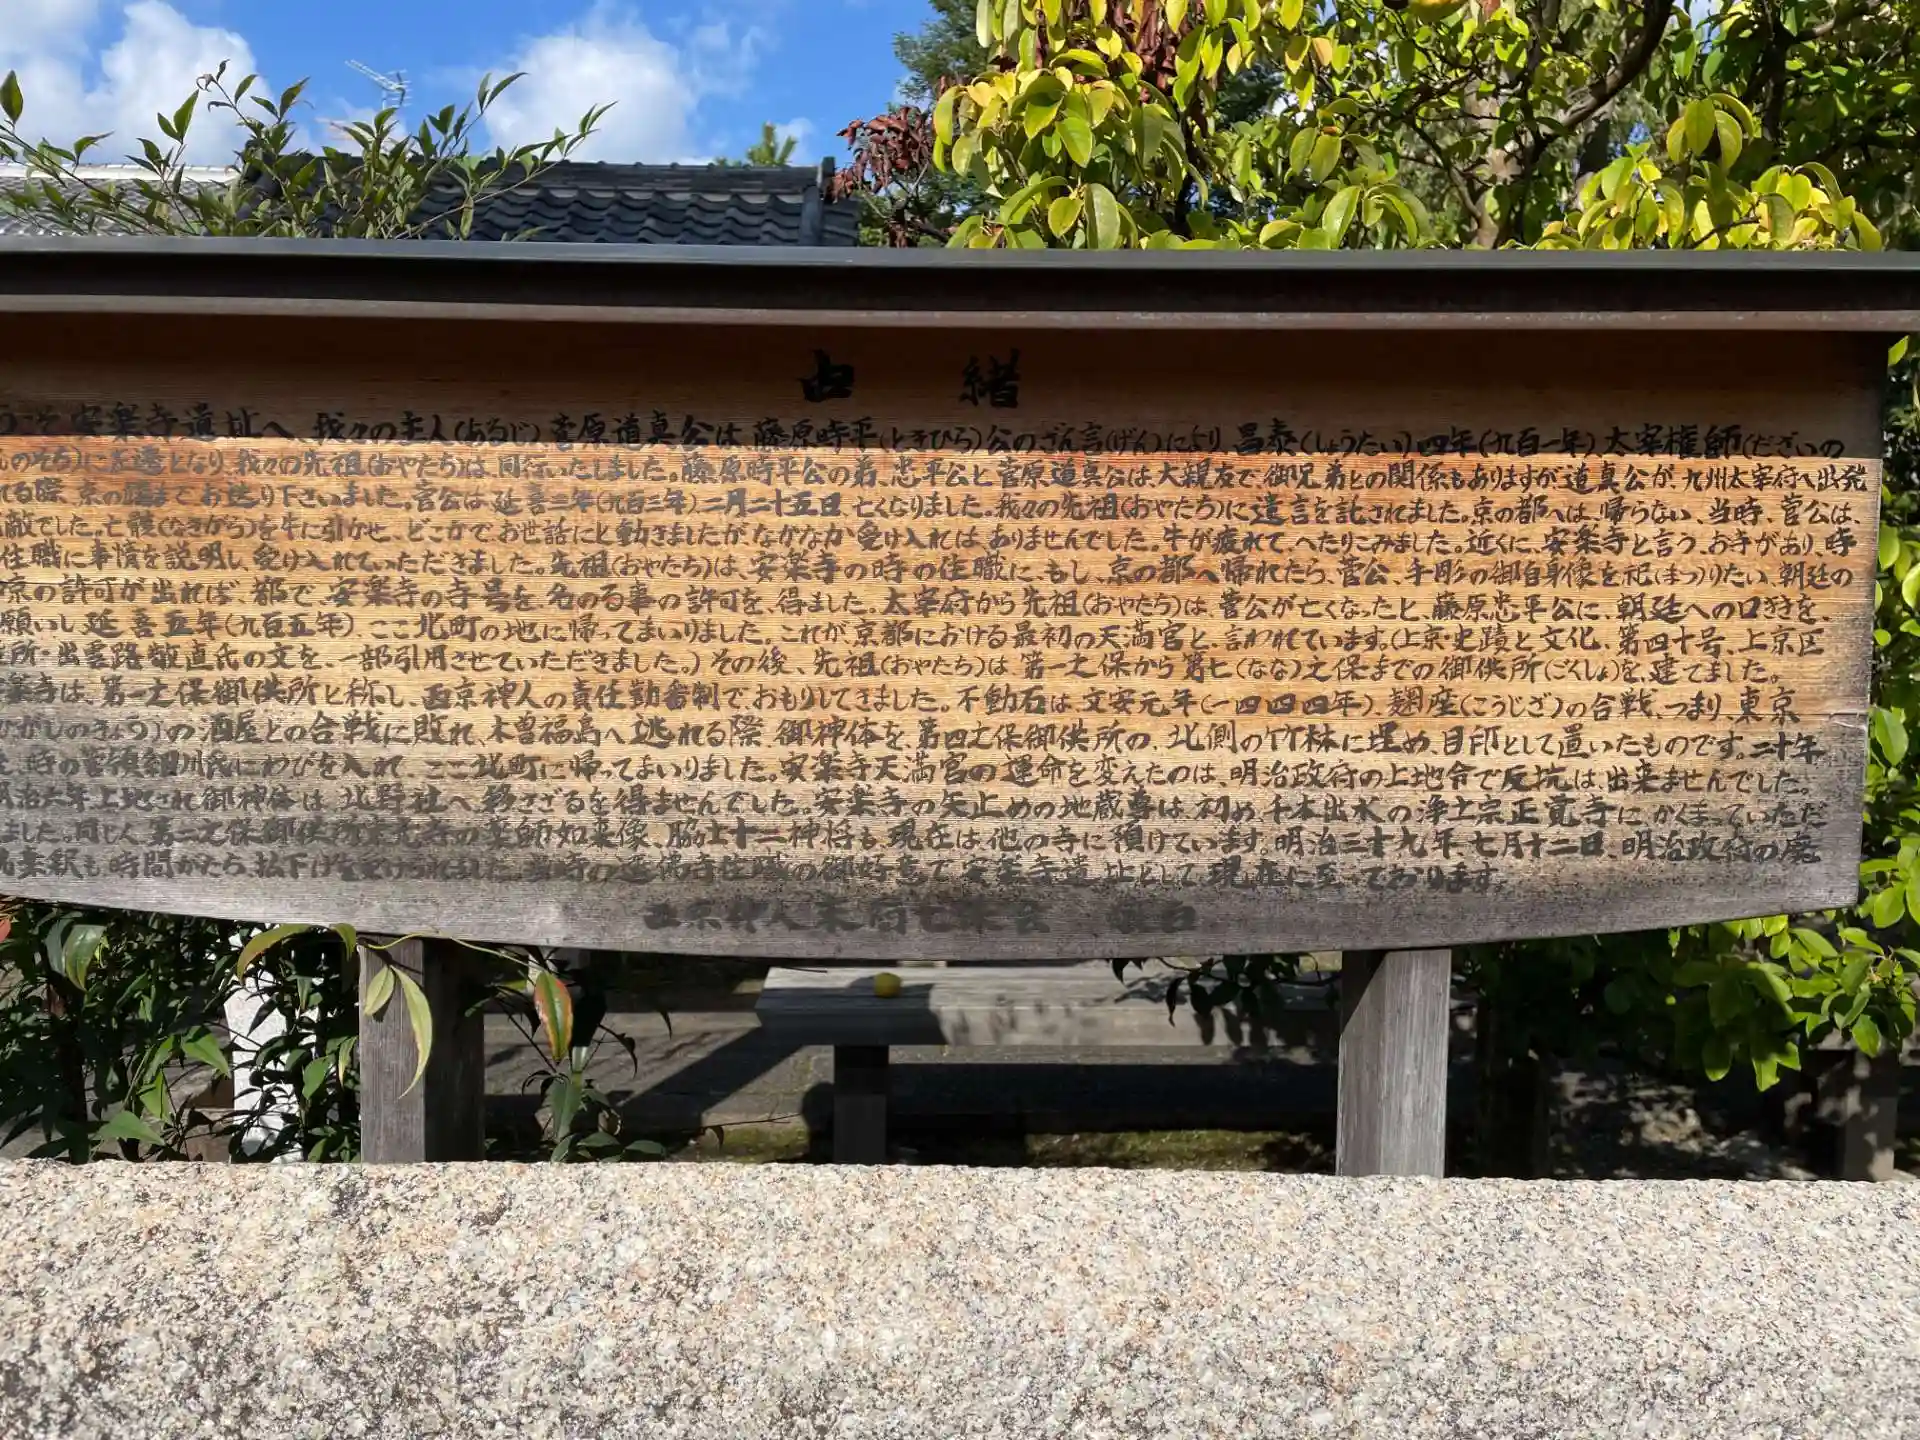 由緒
うこそ安楽寺遺址へ、我々の主人(あるじ)、菅原道真公は、藤原時平(ときひら)公のざん言(げん)により、昌泰(しょうたい)四年(九百一年)、太宰権師(だざいの
んのそち)に左遷となり、我々の先祖(おやたち)は、同行いたしました。藤原時平公の弟、忠平公と菅原道真公は、大親友で、御兄弟との関係もありますが、道真公が、九州太宰府へ出発
れる際、京の まで お送り下さいました。菅公は、延喜三年(九百三年)、二月二十五日 亡くなりました。我々の先祖(おやたち)に遺言を託されました。京の都へは、帰らない、当時、菅公は、
敵でした。亡骸(なきがら)を牛に引かせ、どこかで、お世話にと動きましたがなかなか受け入れは、ありませんでした。牛が疲れて、へたりこみました。近くに、安楽寺と言う、お寺があり、時
住職に事情を説明し、受け入れていただきました。先祖(おやたち)は、安楽寺の時の住職に、もし、京の都へ帰れたら、菅公、手彫の御自身像を祀(まつ)りたい、朝廷の
京の許可が出れば、都で、安楽寺の寺号を、名のる事の許可を、得ました。太宰府から先祖(おやたち)は、菅公が亡くなったと、藤原忠平公に、朝廷への口ききを、
願いし、延喜五年(九百五年)、ここ北町の地に帰ってまいりました。これが、京都における最初の天満宮と、言われています。(上京・史蹟と文化、第四十号、上京区
所・出雲路敬直氏の文を、一部引用させていただきました。)その後、先祖(おやたち)は第一之保から第七(なな)之保までの御供所(ごくしょ)を、建てました。
楽寺は、第一之保御供所と称し、西京神人の責任勤番制で、おもりしてきました。不動石は、文安元年(一四四四年)、麹座(こうじざ)の合戦、つまり、東京
ひがしのきょう)の酒屋との合戦に敗れ、木曽福島へ逃れる際、御神体を、第四之保御供所の、北側の竹林に埋め、目印として置いたものです。二十年
、時の管領細川氏にわびを入れて、ここ北町に帰ってまいりました。安楽寺天満宮の運命を変えたのは、明治政府の上地令で反抗は、出来ませんでした。
明治六年上地され御神体は、北野社へ移さざるを得ませんでした。安楽寺の矢止めの地蔵尊は、初め、千本出水の浄土宗正覚寺に、かくまっていただ
ました。同じく第二之保御供所東光寺の薬師如来像、脇士十二神将も、現在は、他の寺に預けています。明治三十九年七月十二日、明治政府の廃
棄釈も時間がたち、払下げを受けられました。当時の遍佛寺住職の御好意で、安楽寺遺址として現在に至っております。
西京神人 七 会 白